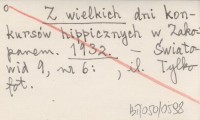 Z wielkich dni kon-
kursów hippicznych w Zako-
panem. 1932. - Świato-
wid 9, nr 6: , il. Tylko
fot.